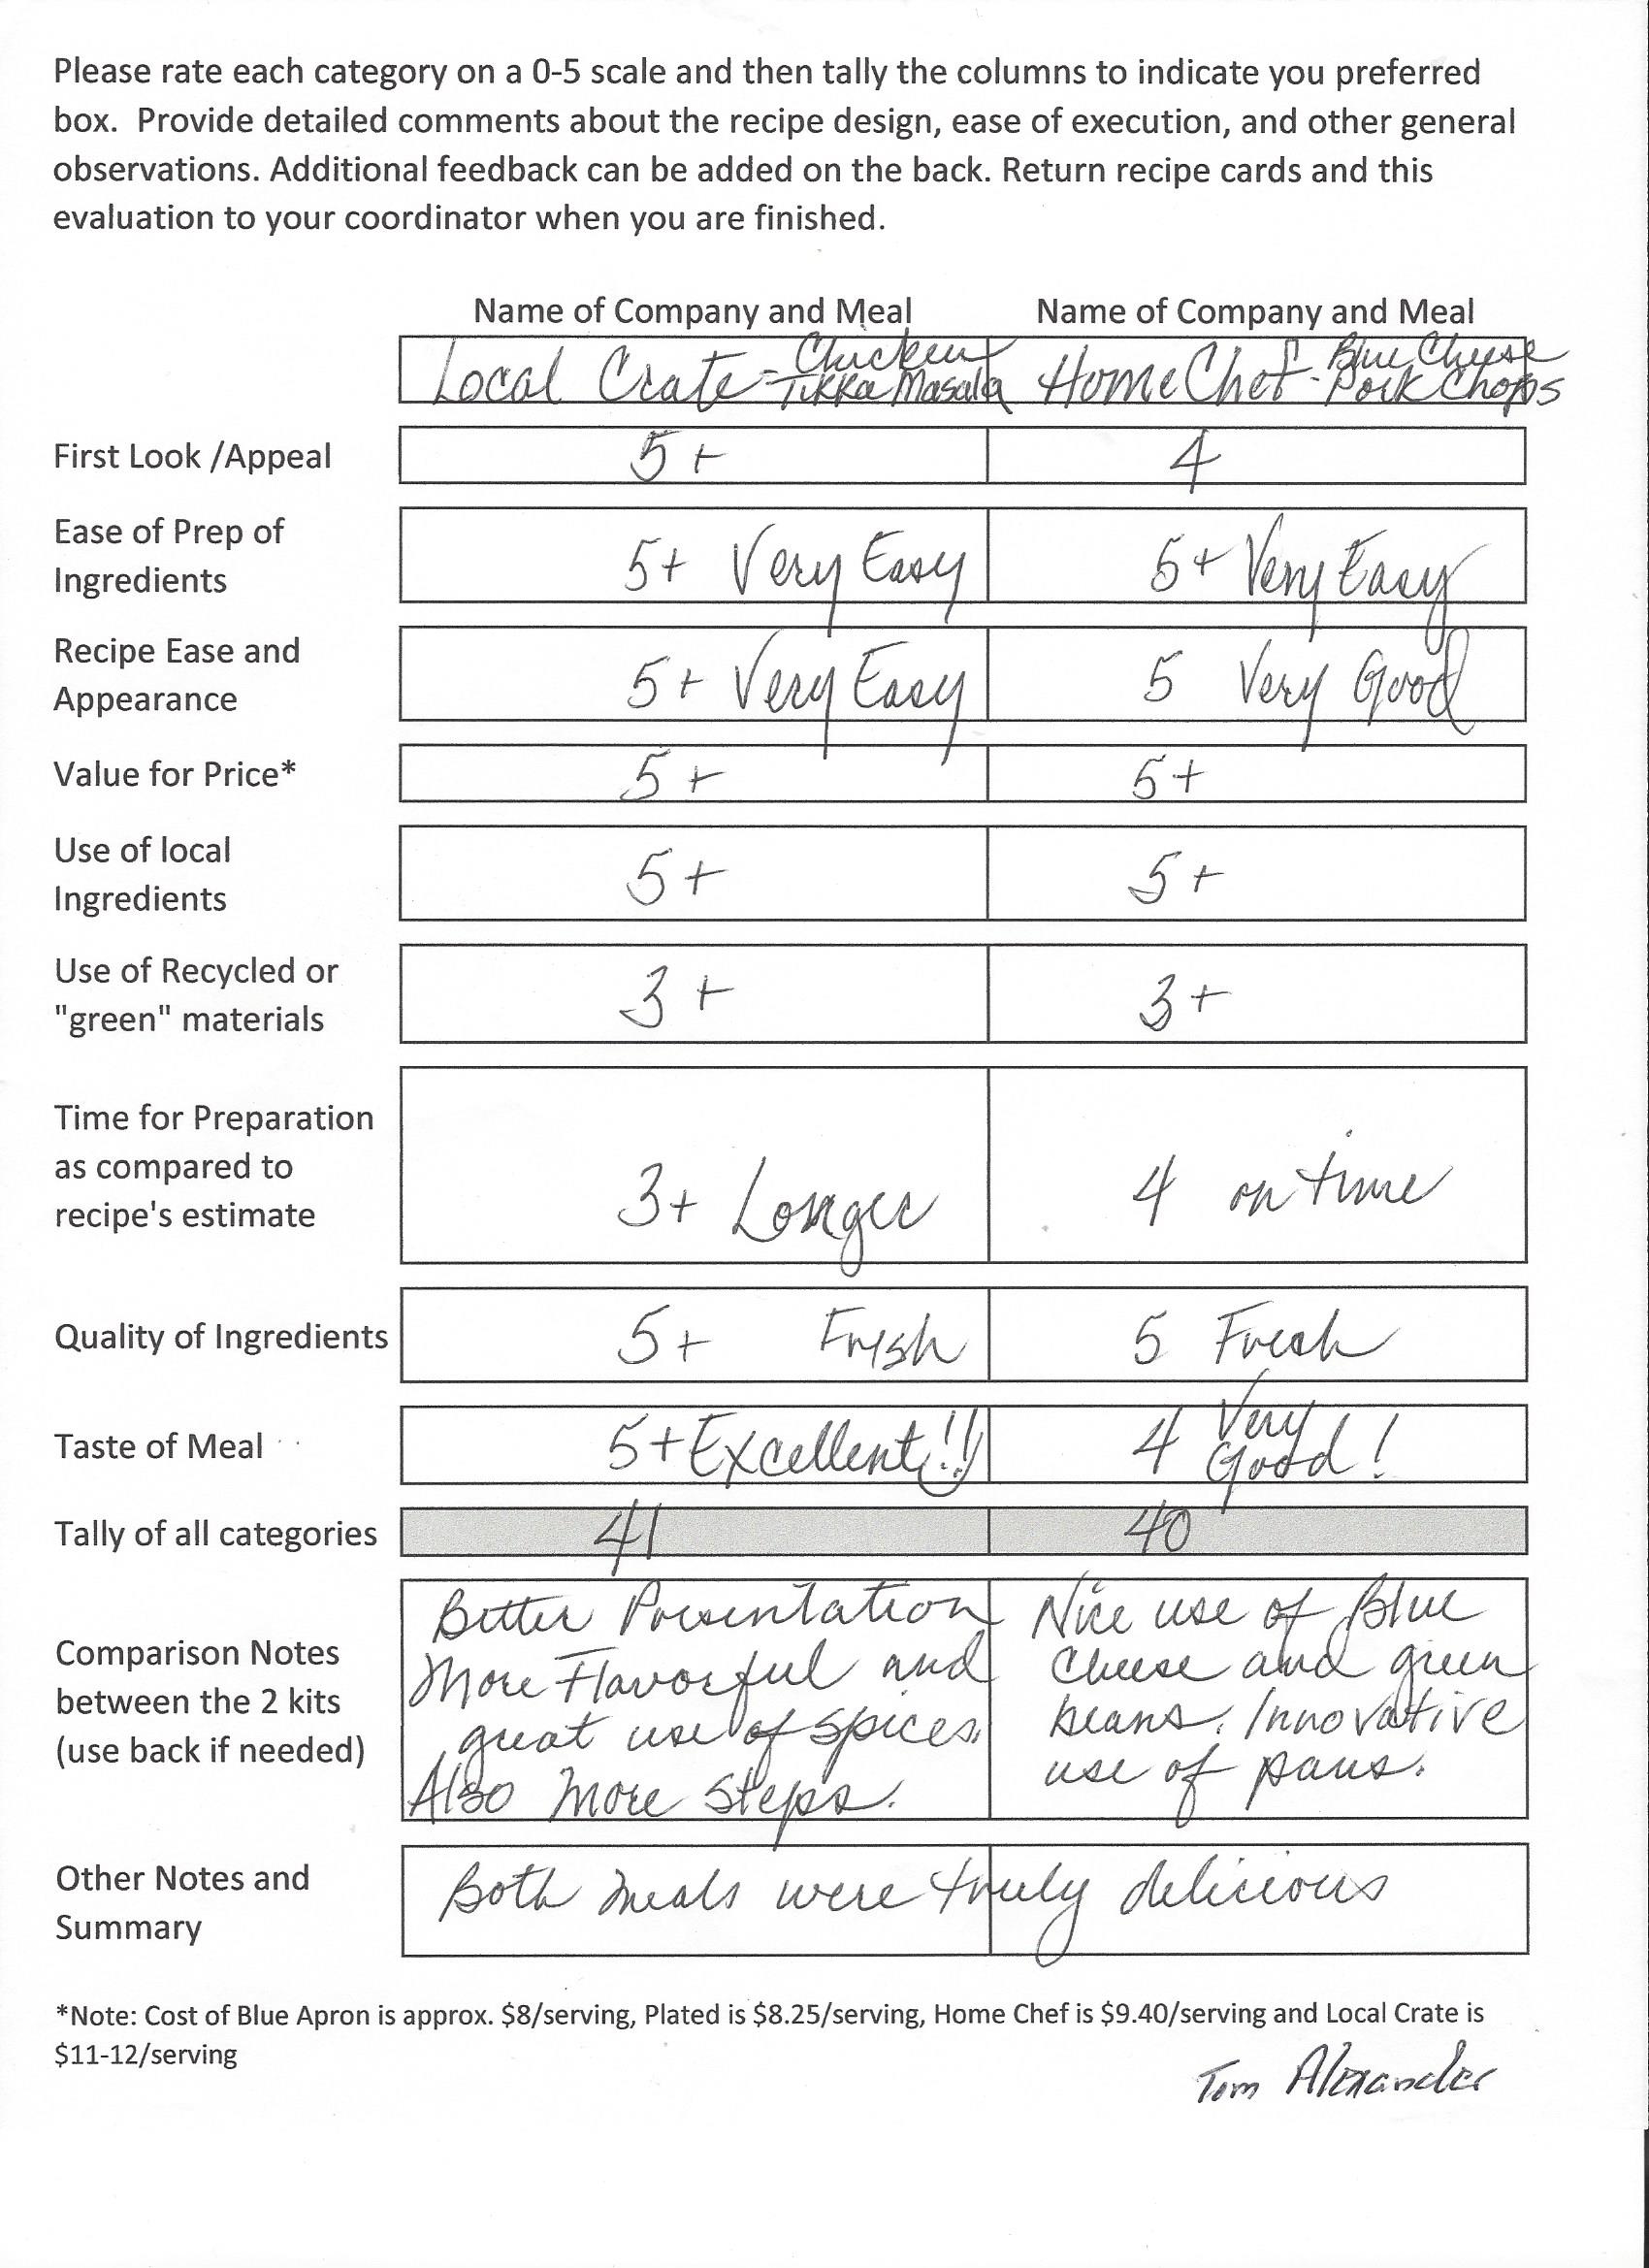 Please rate each category on a 0-5 scale and then tally the columns to indicate you preferred
box. Provide detailed comments about the recipe design, ease of execution, and other general
observations. Additional feedback can be added on the back. Return recipe cards and this
evaluation to your coordinator when you are finished.
Name of Company and Meal Name of Company and Meal
Local Crate - Chicken Tikka Masala HomeChef - Blue Cheese Pork Chops
First Look /Appeal 5+ 4
Ease of Prep of
Ingredients 5+ Very Easy 5+ Very Easy
Recipe Ease and
Appearance 5+ Very Easy 5 Very Good
Value for Price* 5+ 5+
Use of local
Ingredients 5+ 5+
Use of Recycled or
"green" materials 3+ 3+
Time for Preparation
as compared to
recipe's estimate 3+ Longer 4 on time
Quality of Ingredients 5+ Fresh 5 Fresh
Taste of Meal 5+ Excellent!! 4 Very Good!
Tally of all categories 41 40
Comparison Notes
between the 2 kits
(use back if needed)
Better Presentation
More Flavorful and
great use of spices.
Also More Steps.
Nice use of Blue
Cheese and green
beans. Innovative
use of pans.
Other Notes and
Summary
Both meals were truly delicious
*Note: Cost of Blue Apron is approx. $8/serving, Plated is $8.25/serving, Home Chef is $9.40/serving and Local Crate is
$11-12/serving
Tom Alexander